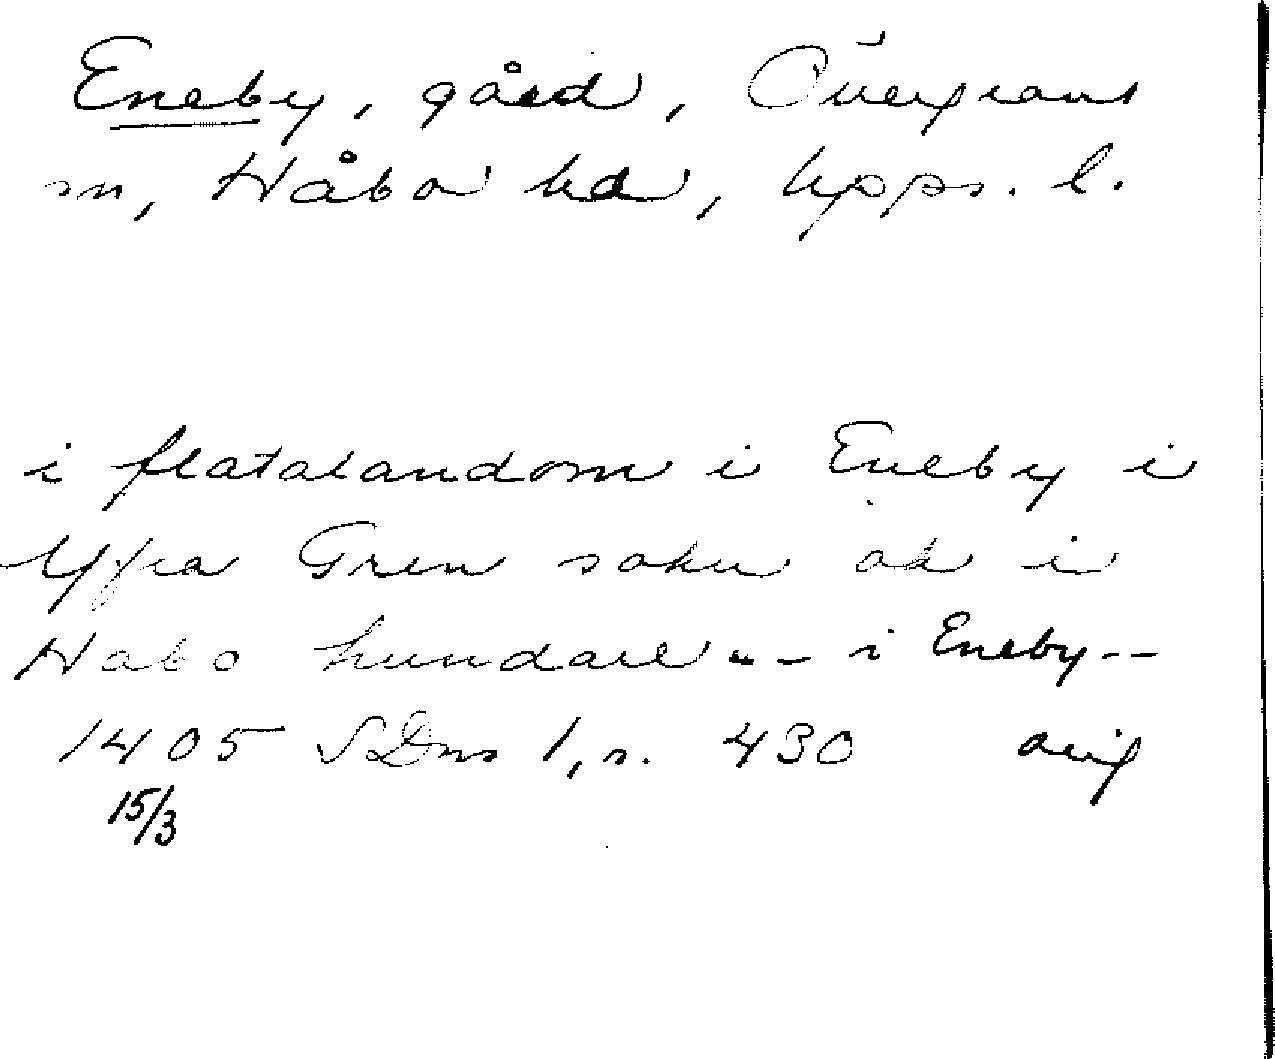 Eneby, gård, Övergrans
sn, Håbo hd, Upps. l.
i flatalandom i Eneby i
Yfra Gren sokn ok i
Habo hundare -- i Eneby --
1405 SDns 1, s. 430 orig
15/3